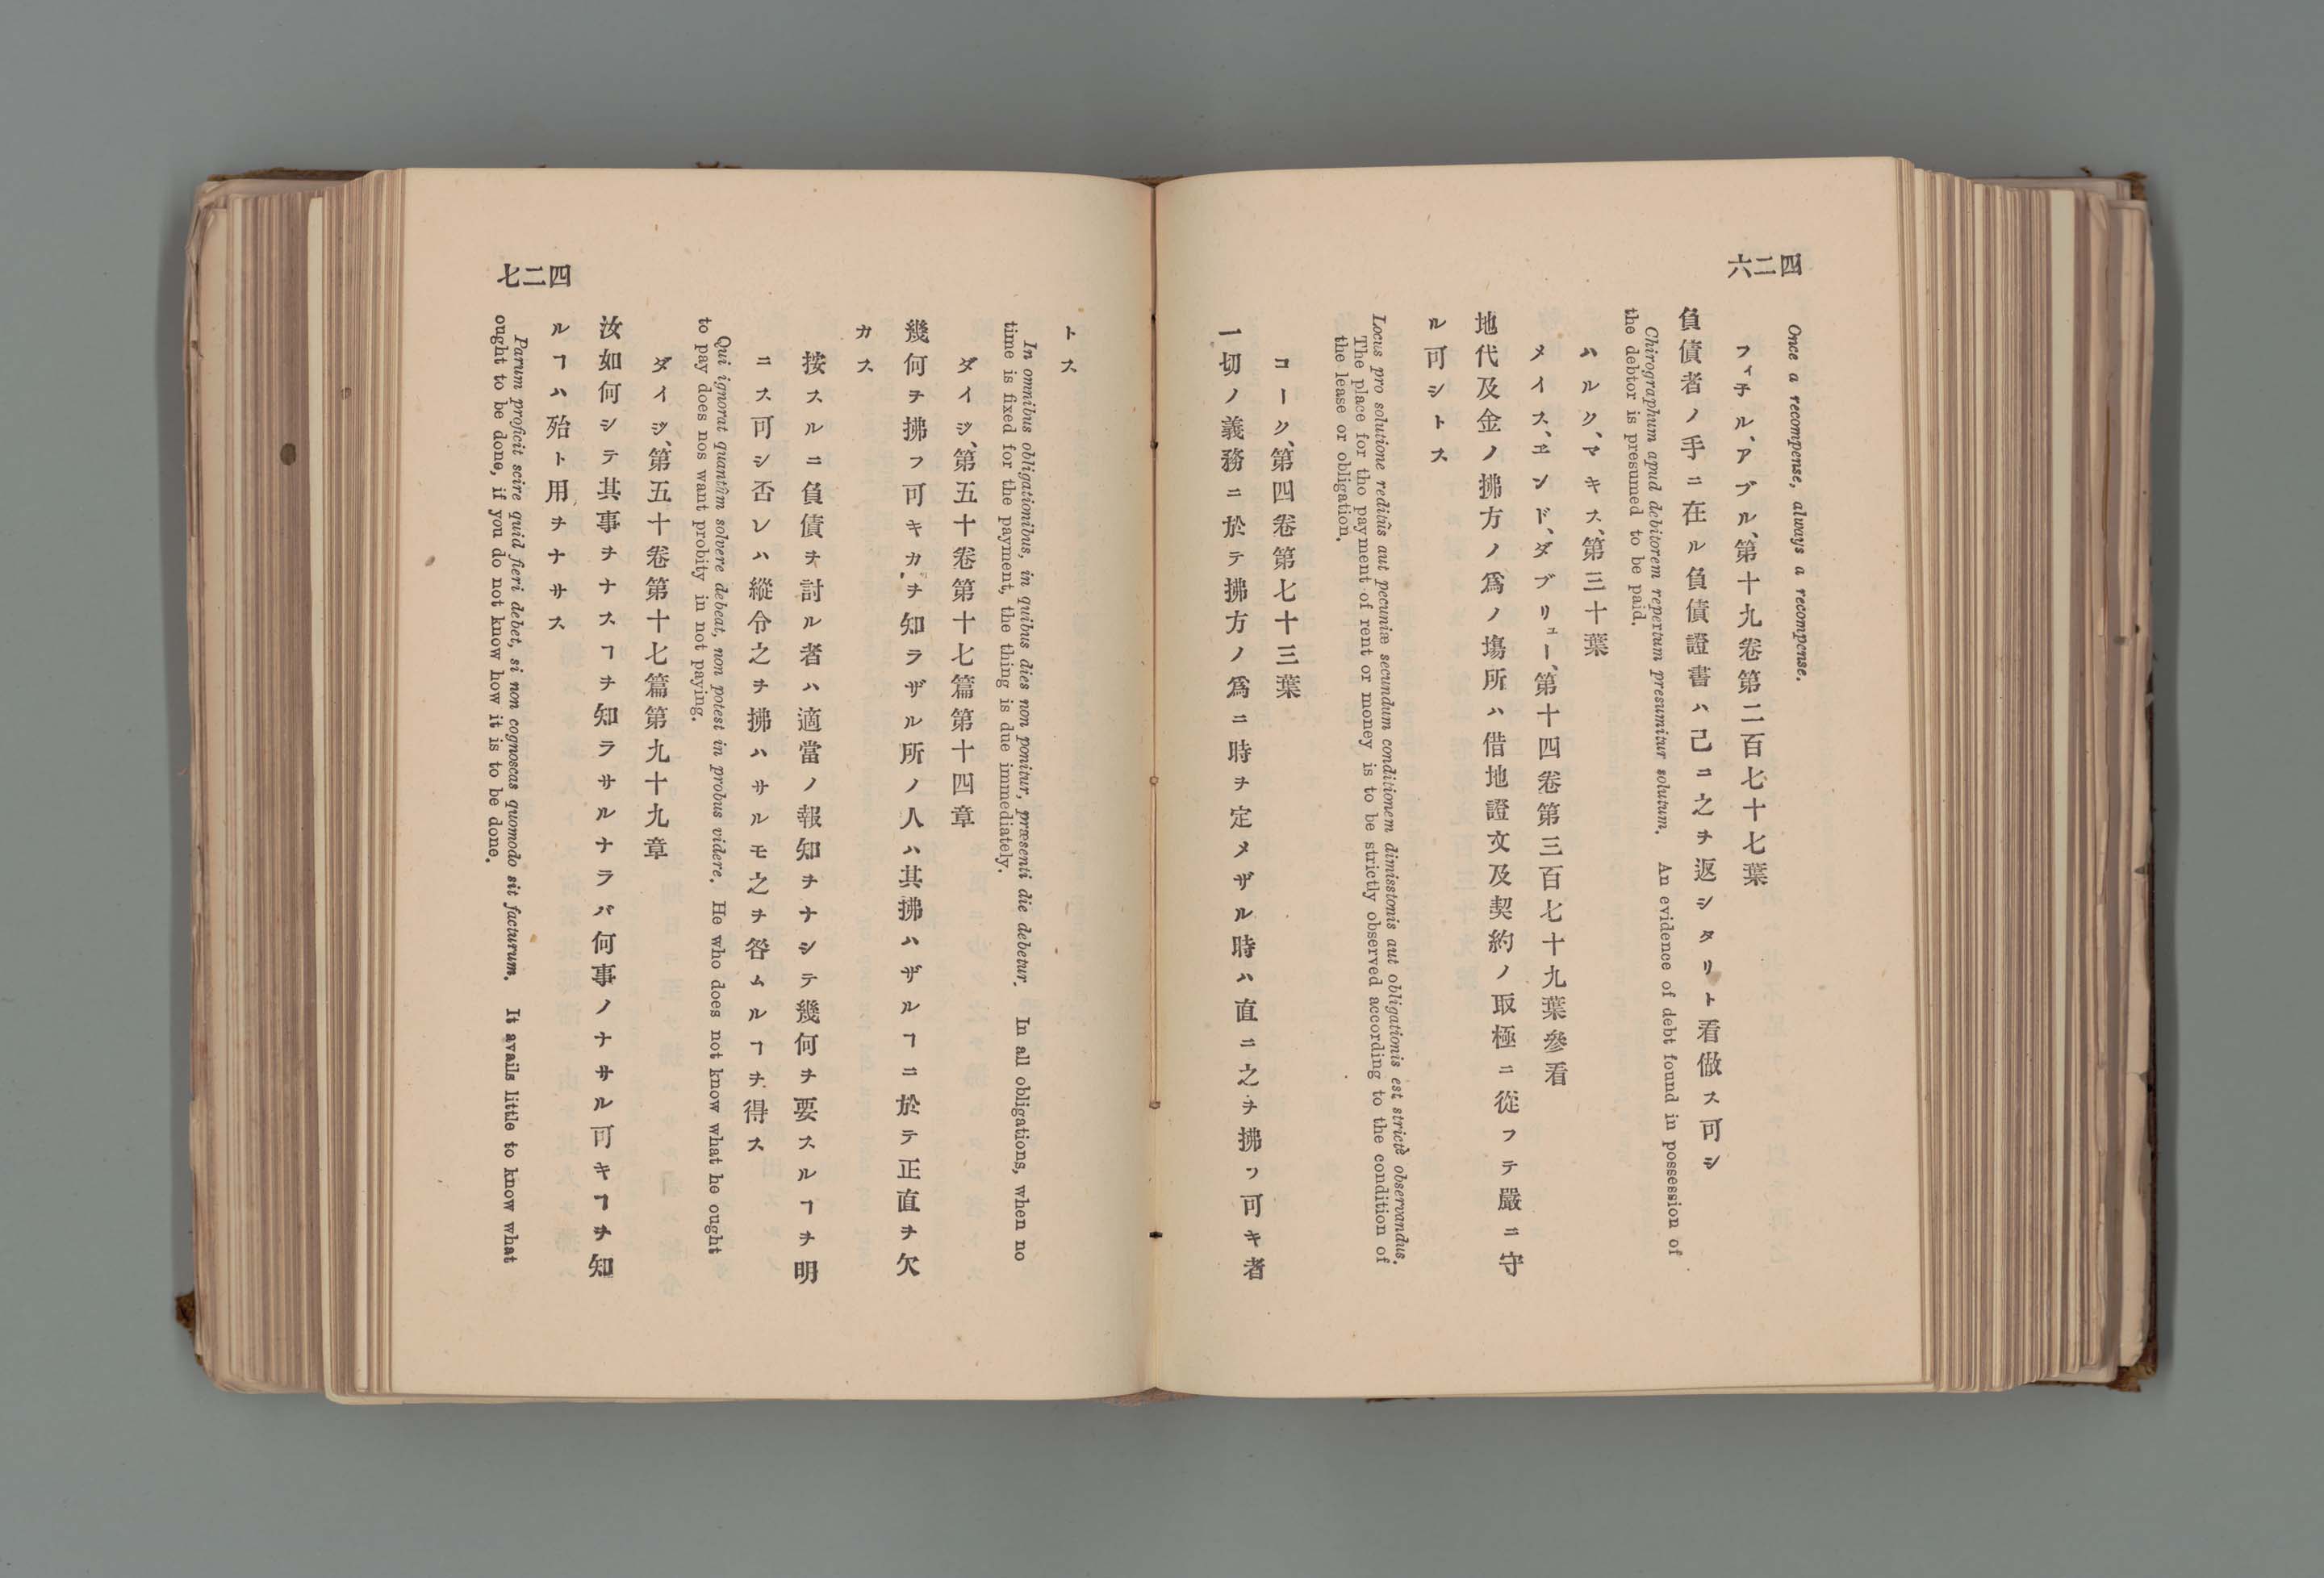 四二六
Once a recompense, always a recompense.
フィチル、アブル、第十九卷第二百七十七葉
負債者ノ手ニ在ル負債證書ハ己ニ之ヲ返シタリト看做ス可シ
Chirographum apud debitorem repertum presumitur solutum. An evidence of debt found in possession of
the debtor is presumed to be paid.
ハルク、マキス、第三十葉
メイス、ヱンド、ダブリュー、第十四卷第三百七十九葉參看
地代及金ノ拂方ノ爲ノ塲所ハ借地證文及契約ノ取極ニ從フテ嚴ニ守
ル可シトス
Locus pro solutione reditûs aut pecuniæ secundum conditionem dimisstonis aut obligationis est strictè observandus.
The place for tho payment of rent or money is to be strictly observed according to the condition of
the lease or obligation.
コーク、第四卷第七十三葉
一切ノ義務ニ於テ拂方ノ爲ニ時ヲ定メザル時ハ直ニ之ヲ拂フ可キ者
四二七
トス
In omnibus obligationibus, in quibus dies non ponitur, præsenti die debetur. In all obligations, when no
time is fixed for the payment, the thing is due immediately.
ダイジ、第五十卷第十七篇第十四章
幾何ヲ拂フ可キカヲ知ラザル所ノ人ハ其拂ハザルヿニ於テ正直ヲ欠
カス
按スルニ負債ヲ討ル者ハ適當ノ報知ヲナシテ幾何ヲ要スルヿヲ明
ニス可シ否レハ縱令之ヲ拂ハサルモ之ヲ咎ムルヿヲ得ス
Qui ignorat quantûm solvere debeat, non potest in probus videre. He who does not know what he ought
to pay does nos want probity in not paying.
ダイジ、第五十卷第十七篇第九十九章
汝如何シテ其事ヲナスヿヲ知ラサルナラバ何事ノナサル可キヿヲ知
ルヿハ殆ト用ヲナサス
Parum proficit scire quid fieri debet, si non cognoscas quomodo sit facturum. It avails little to know what
ought to be done, if you do not know how it is to be done.